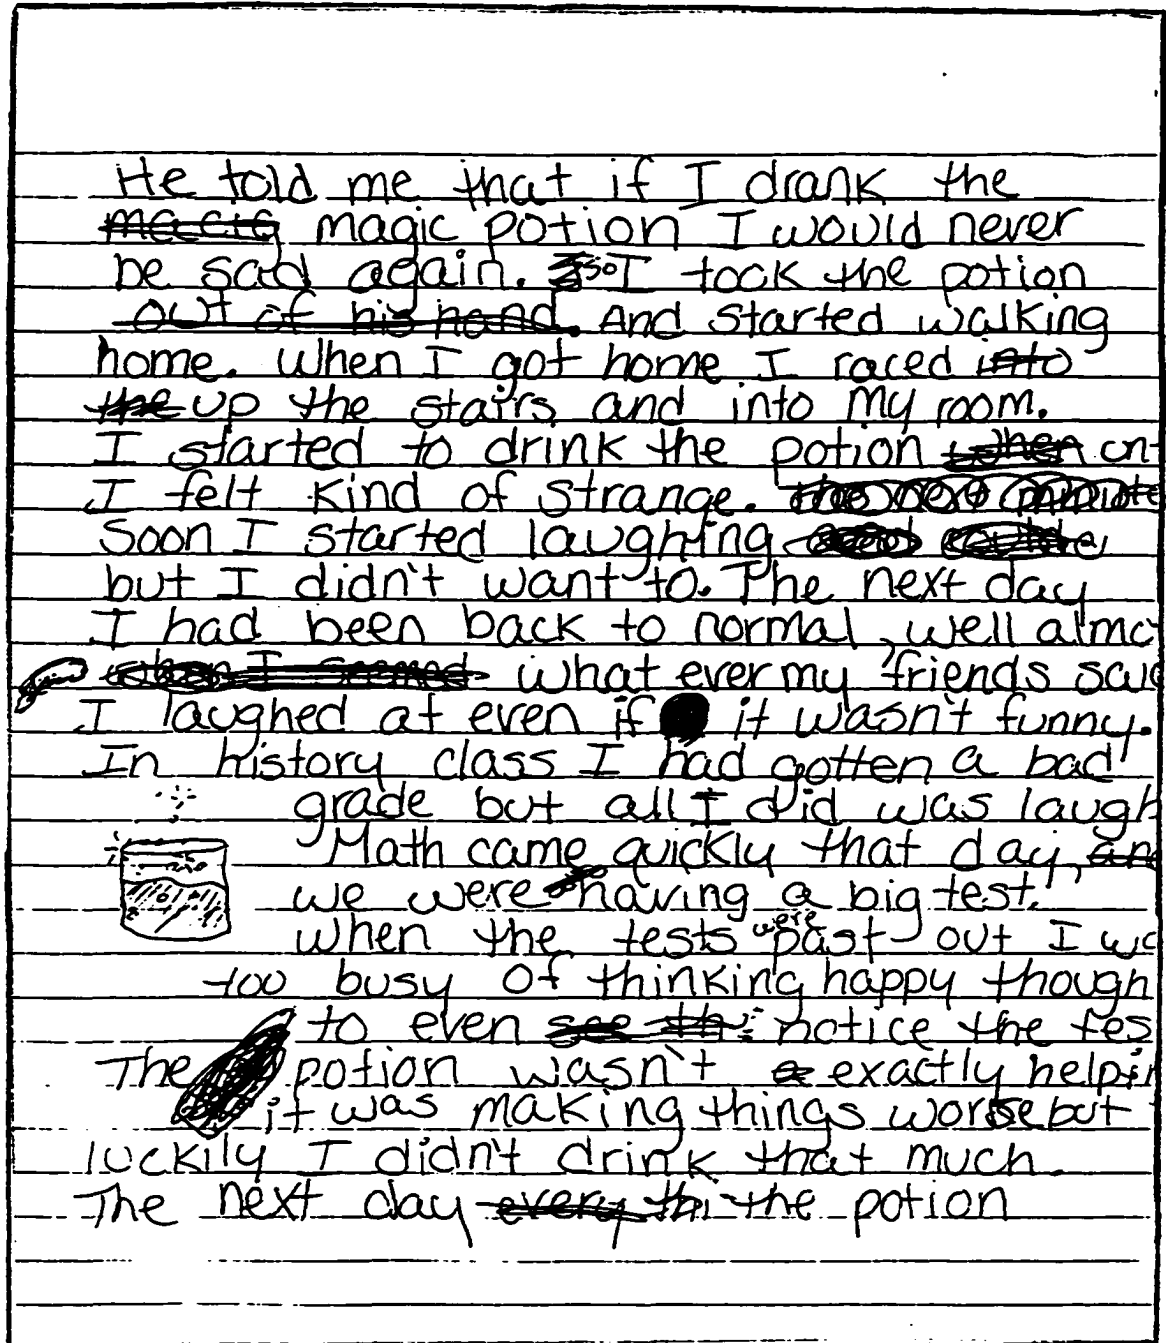 He told me that if I drank the
magic potion I would never
be sad again. so I took the potion
out of his hand. And started walking
home. When I got home I raced into
the up the stairs and into my room.
I started to drink the potion when unt
I felt kind of strange. the next minute
Soon I started laughing
but I didn't want to. The next day
I had been back to normal, well almo
when I seemed what ever my friends said
I laughed at even if it wasn't funny.
In history class I had gotten a bad
grade but all I did was laugh
Math came quickly that day, and
we were having a big test.
When the tests were past out I wa
too busy of thinking happy though
to even see th notice the tes
The potion wasn't a exactly helpin
it was making things worse but
luckily I didn't drink that much.
The next day every thi the potion